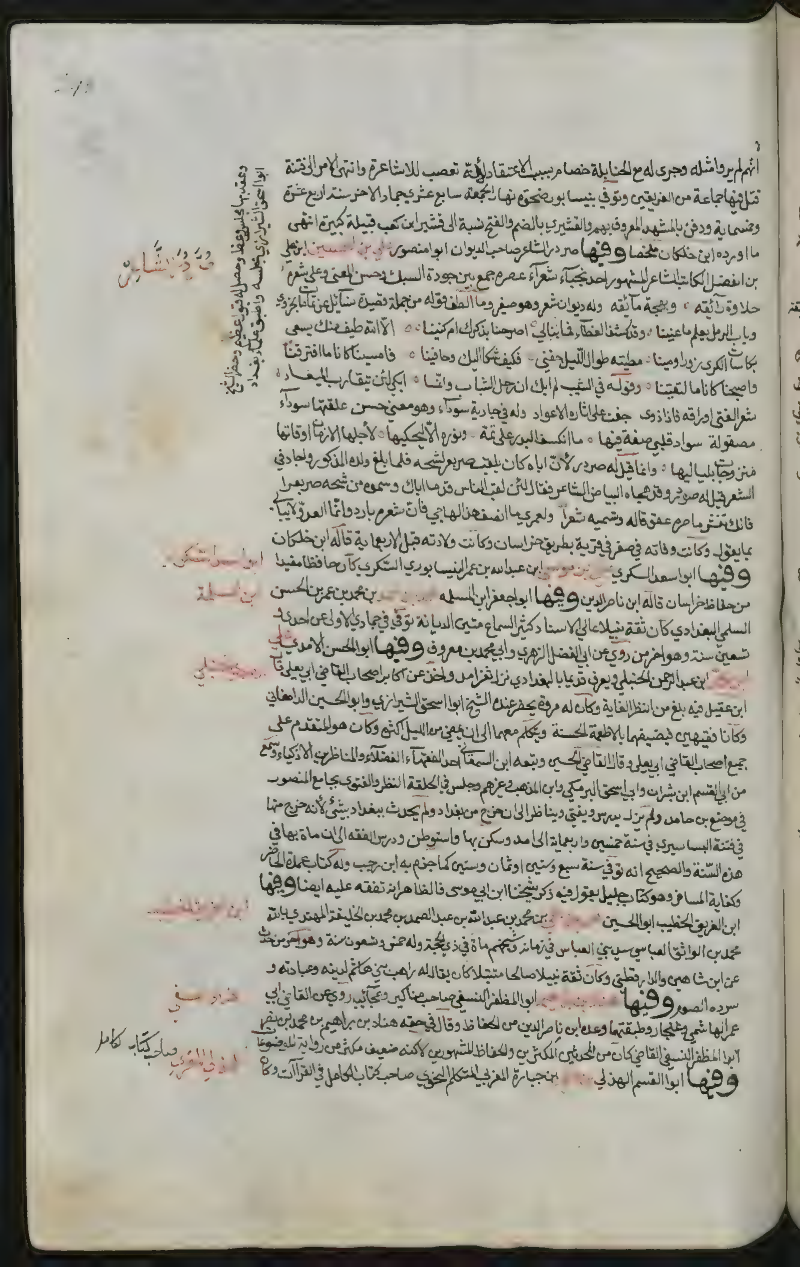 انهم لم يروا مثله وجرى له مع الحنابلة خصام بسبب الاعتقاد لأنه تعصب للاشاعرة وانتهى الامر الى فتنة
قتل فيها جماعة من الفريقين وتوفي بنيسابور ضحوة نهار الجمعة سابع عشري جمادى الاخر سنة اربع عشرة
وخمسماية ودفن بالمشهد المعروف بهم والقشيري بالضم والفتح نسبة الى قشير ابن كعب قبيلة كبيرة انتهى
ما اورده ابن خلكان ملخصا وفيها صردر الشاعر صاحب الديوان ابوا منصور علي بن الحسن بن علي
بن الفضل الكاتب الشاعر المشهور احد نجباء شعراء عصره جمع بين جودة السبك وحسن المعنى وعلى شعره
حلاوة رائقة وبهجة فائقة وله ديوان شعر وهو صغير وما الطف قوله من جملة قصيدة
بكاسات الكرى زورا ومينا مطيته طوال الليل جفني فكيف شكا اليك وجا واينا فامسينا كانا ما افترقنا
واصبحنا كانا ما التقينا وقوله في الشيب لم ابك ان رحل الشباب وانما ابكي لئن يتقارب الميعاد
شعر الفتى اوراقه فاذا ذوى جفت على اثاره الاعواد وله في جارية سوداء وهو معنى حسن علقتها سوداء
مصقولة سواد قلبي صفة فيها ما انكسف البدر على تمه ونوره الا ليحكيها لأجلها الازمان اوقاتها
بلياليها وانما قيل له صردر لأن اباه كان يلقب صربعر لشحه فلما نبغ ولده المذكور واجاد في
الشعر قيل له صردر وقد هجاه البياضي الشاعر فقال لئن لقب الناس قدما اباك وسموه من شحه صربعرا
فانك تنثر ما صره عقوقا له وتسميه شعرا ولعمري ما انصف هذا الهاجي فان شعره نادر وانما العدو لا يبالي
بما يقول وكانت وفاته في صفر في قرية بطريق خراسان وكانت ولادته قبل الاربعماية قاله ابن خلكان
وفيها ابوا سعد السكري علي بن موسى ابن عبد الله بن عمر النيسابوري السكري كان حافظا مفيدا
من حفاظ خراسان قاله ابن ناصر الدين وفيها ابوا جعفر ابن المسلمه محمد بن احمد بن محمد بن عمر بن الحسن
السلمي البغدادي كان ثقة نبيلا عالي الاسناد كثير السماع متين الديانة توفي في جمادي الاولى عن احدى و
تسعين سنة وهو اخر من روى عن ابي الفضل الزهري وابي محمد بن معروف وفيها ابوا الحسن الامدي علي
ابن محمد ابن عبد الرحمن الحنبلي ويعرف قديما بالبغدادي نزل ثغر امد واخذ عن اكابر اصحاب القاضي ابي يعلى قال
ابن عقيل فيه بلغ من النظر الغاية وكان له مروة يحضر عنده الشيخ ابوا اسحق الشيرازي وابوا الحسين الدامغاني
وكانا فقيهين فيضيفهما بالاطعمة الحسنة ويتكلم معهما الى ان يمضي من الليل اكثره وكان هو المتقدم على
جميع اصحاب القاضي ابي يعلى وقال القاضي الحسين وتبعه ابن السمعاني احد الفقهاء الفضلاء والمناظرين الاذكياء وسمع
من ابي القسم ابن بشران وابي اسحق البرمكي وابن المذهب وغيرهم وجلس في الحلقة النظر والفتوى بجامع المنصور
في موضع بن حامد ولم يزل يدرس ويفتي ويناظر الى ان خرج من بغداد ولم يحدث ببغداد بشئ لأنه خرج منها
في فتنة البساسيري في سنة خمسين واربعماية الى امد وسكن بها واستوطن ودرس الفقه الى ان مات بها في
هذه السنة والصحيح انه توفي سنة سبع وستين او ثمان وستين كما جزم به ابن رجب وله كتاب عمدة الحاضر
وكفاية المسافر وهو كتاب جليل يقول فيه ذكر شيخنا ابن ابي موسى فالظاهر انه تفقه عليه ايضا وفيها
ابن الغريق الخطيب ابوا الحسين محمد بن علي بن محمد بن عبد الله بن عبد الصمد بن محمد بن الخليفة المهتدي بالله
محمد بن الواثق العباسي سيد بني العباس في زمانه وشيخهم مات في ذي الحجة وله خمس وتسعون سنة وهو اخر من حدث
عن ابن شاهين والدارقطني وكان ثقة نبيلا صالحا متبتلا كان يقال له راهب بني هاشم لدينه وعبادته و
سرده الصوم وفيها هناد بن ابراهيم ابوا المظفر النسفي صاحب مناكير وعجائب روى عن القاضي ابي
عمر الهاشمي وغنجار وطبقتهما وعده ابن ناصر الدين من الحفاظ وقال في حقه هناد بن ابراهيم بن محمد بن نصر
ابوا المظفر النسفي القاضي كان من المحدثين المكثرين والحفاظ المشهورين لاكنه ضعيف مكثر من رواية الموضوعات
وفيها ابوا القسم الهذلي يوسف بن علي بن جبارة المغربي المتكلم النحوي صاحب كتاب الكامل في القراآت وكان
صردر الشاعر
ابوا سعد السكري
ابن المسلمة
ابن الغريق الخطيب
هناد النسفي
الهذلي المقري
صاحب كتاب كامل